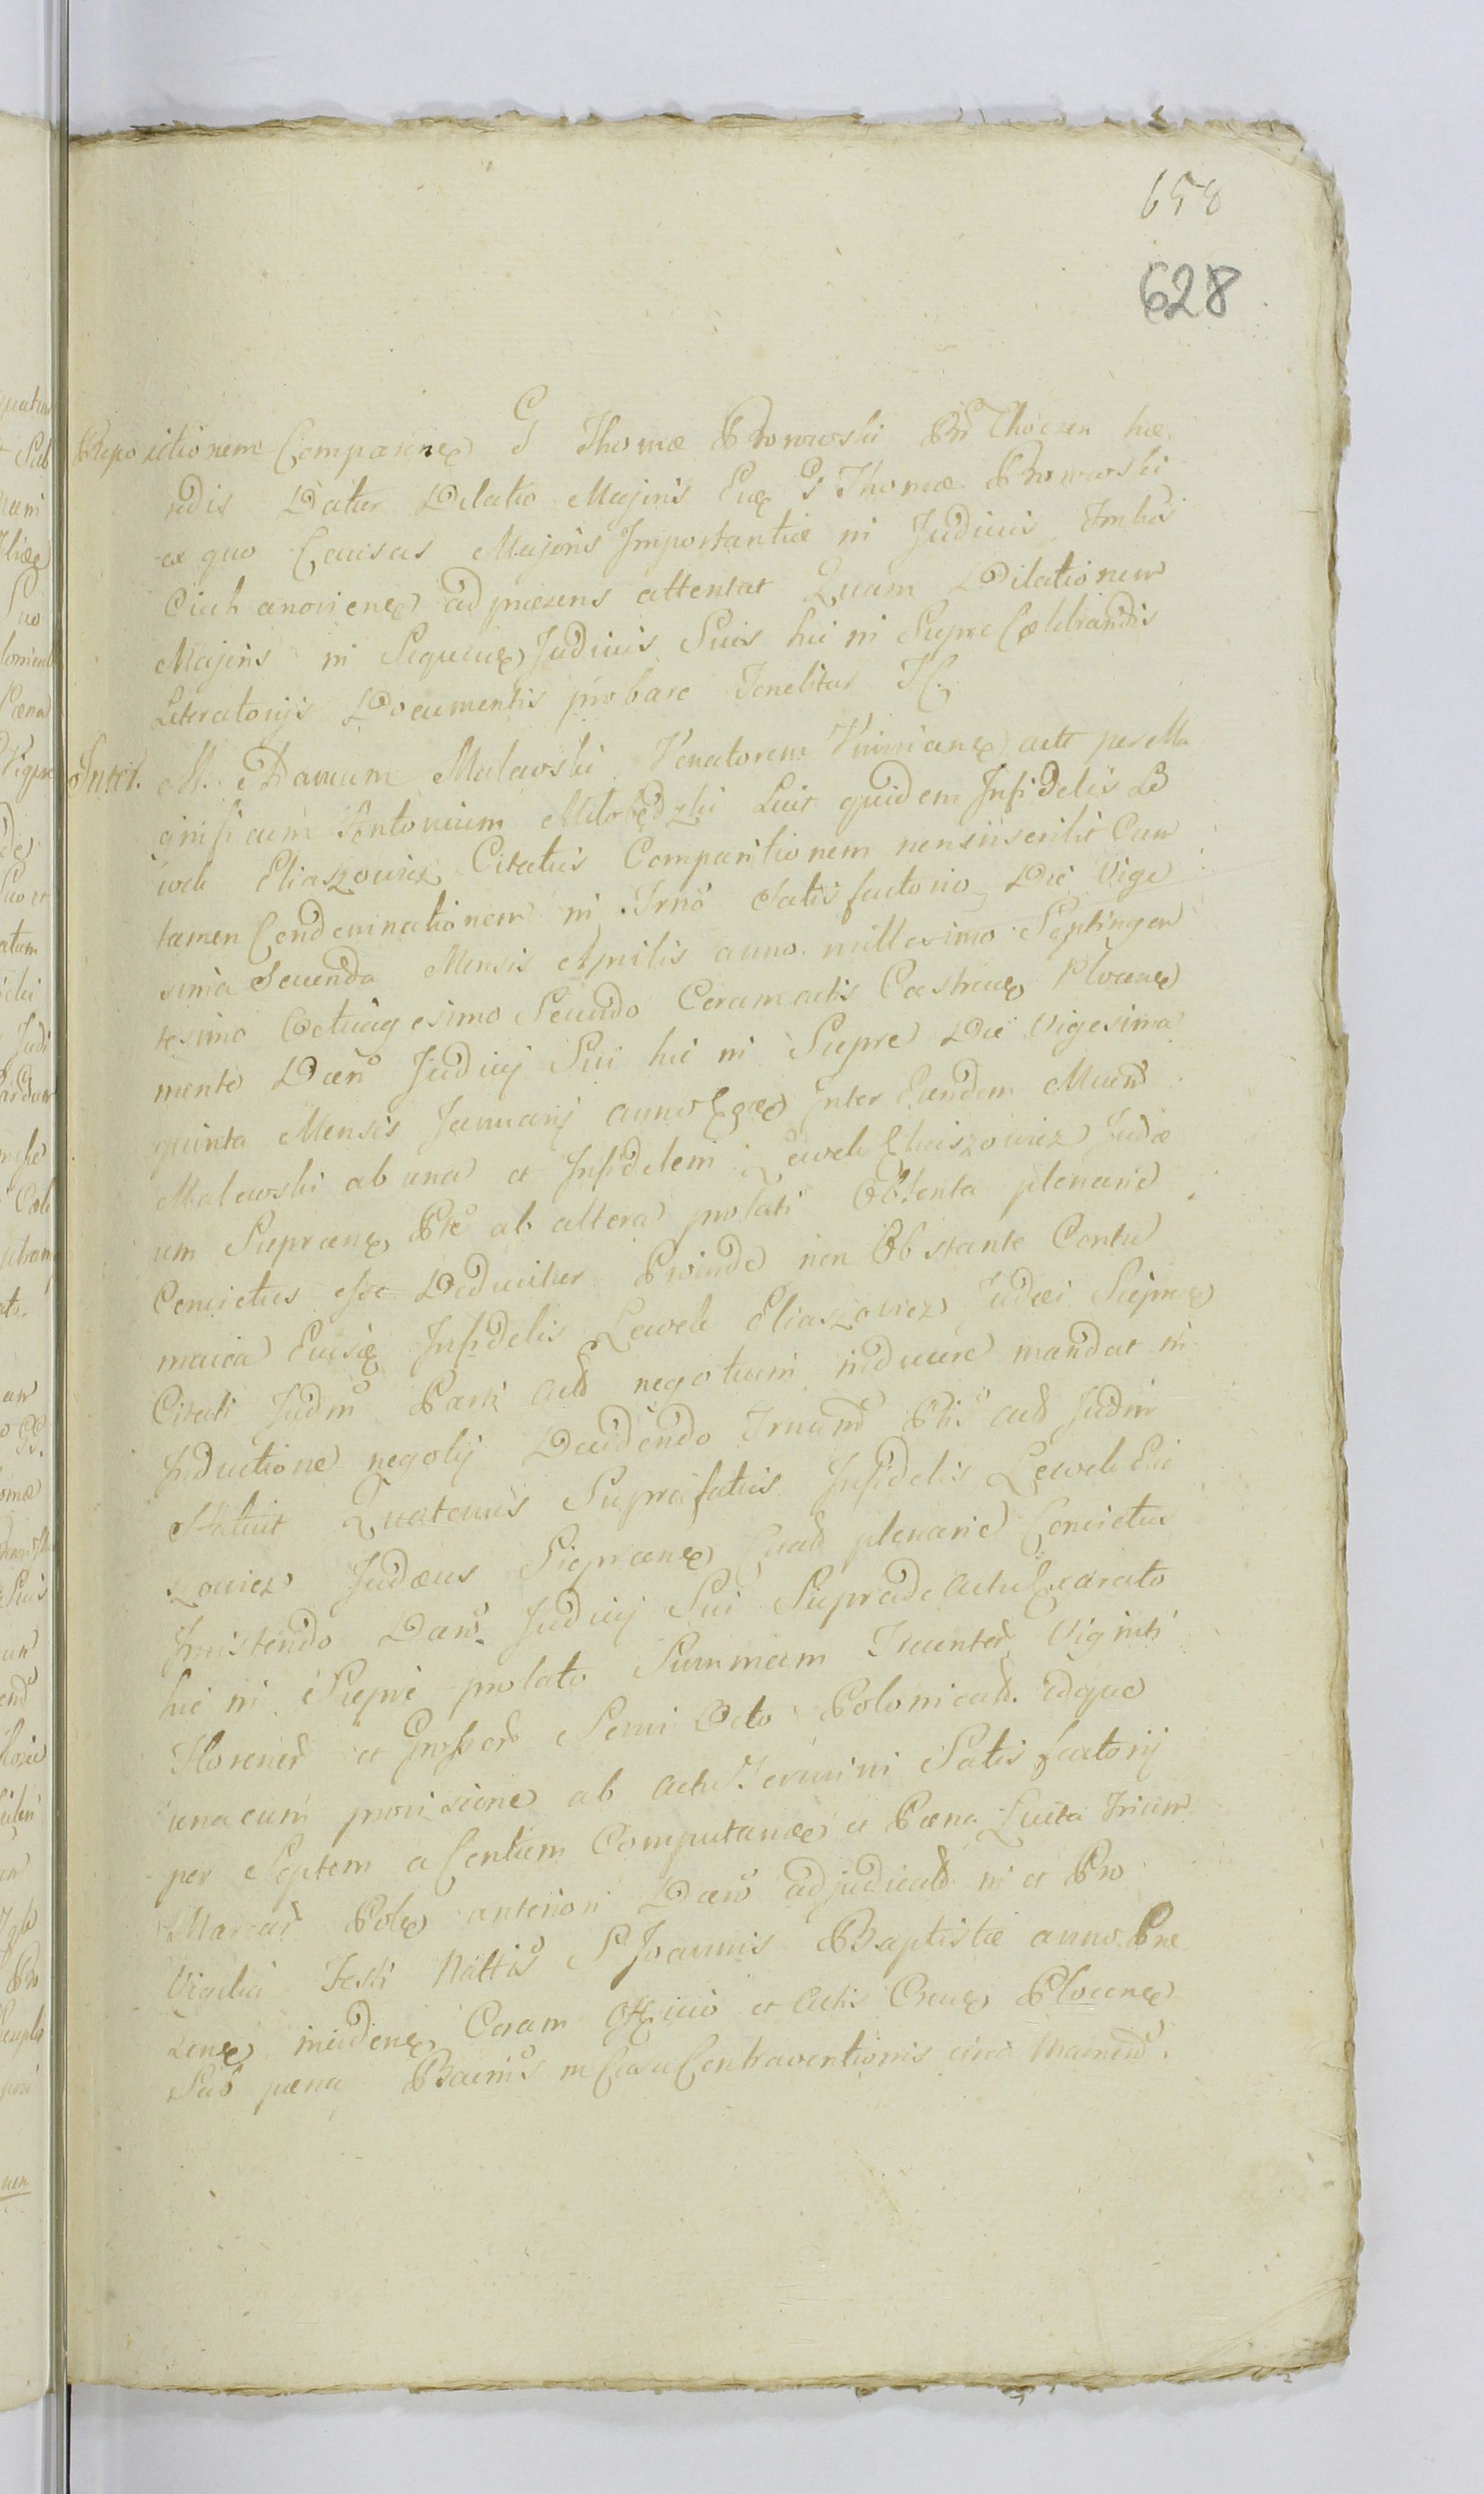 658
628
Repositionem Comparene G Thomæ Bromirski Bni Choczen hæ
redis Datur Dilatio Majoris Eug G Thomæ Bromirski
ex quo Causas Majoris Importantiæ in Judicijs Trnbus
Ciechanoviene adpræsens attentat Quam Dilationem
Majoris in Sequene Judicijs Suis hic in Sieprc Celebrandis
Literatorijs Documentis probare Tenebitur
Inter. M. Malewski Venatorem act per Ma
gnificum Antonium Milobędzki Luit quidem Infidelis Le
wek Eliaszowicz Citatus Comparitionem non inscribit Cum
tamen Condemnationem in Trno Satisfactorio Die Vige
sima Secunda Mensis Aprilis anno millesimo Septingen
tesimo Octuagesimo Secundo Coram actis Castrene Plocene
mente Decr Judicij Sui hic in Sieprc Die Vigesima
quinta Mensis Januarij anno inter Eundem Mcum
Malewski ab una et Infidelem Lewek Eliaszowicz Judæ
um Sieprcene Pte ab altera prolati Obtenta plenarie
Convictus esse Deducitur Proinde non Obstante Contu
macia Infidelis Lewek Eliaszowicz Judæi Sieprcene
Citati Judm Parti Actd negotium inducere mandat in
Inductione negotij Decidendo Trnum Ptis actd Judm
Statuit Quatenus Suprafatus Infidelis Lewek Elia
szowicz Judæus Sieprcene plenarie Convictus
Insistendo Decr. Judicij Sui Suprade actu Exarato
hic in Sieprc prolato Summam Trecenter Viginti
Florener et Grosser Semi Octo Polonicald. idque
unacum provisione ab actu Termini Satisfactorij
per Septem a Centum Computane et Pæna Luita Trium
Marcar Pole anteriori Decr adjudicald in et Pro
Vigilia Festi Nattis S Joannis Baptistæ anno Præ
sene incidene Coram Officio et Actis Crene Plocene
Sub pæna Bannis in Casu Contraventionis